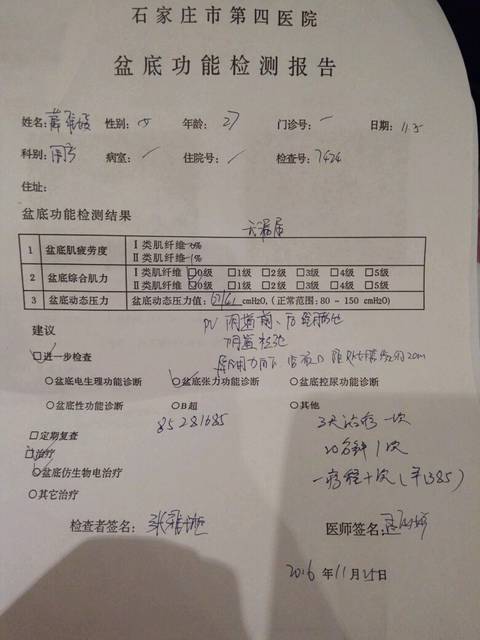 石家庄市第四医院
盆底功能检测报告
姓名: 性别:女 年龄:27 门诊号: 日期:11.5
科别: 病室:/ 住院号:/ 检查号:7424
住址:
盆底功能检测结果
无漏尿
1 盆底肌疲劳度 Ⅰ类肌纤维 %
Ⅱ类肌纤维 %
2 盆底综合肌力 Ⅰ类肌纤维 ☑0级 □1级 □2级 □3级 □4级 □5级
Ⅱ类肌纤维 ☑0级 □1级 □2级 □3级 □4级 □5级
3 盆底动态压力 盆底动态压力值: cmH2O,(正常范围:80－150 cmH2O)
PV 阴道前、后壁
建议 阴道松弛
☑进一步检查
○盆底电生理功能诊断 ○盆底张力功能诊断 ○盆底控尿功能诊断
○盆底性功能诊断 ○B超 ○其他
85281685 3天治疗一次
□定期复查 20分钟1次
☑治疗 一疗程十次
○盆底仿生物电治疗
○其它治疗
检查者签名: 医师签名:
2016年11月25日